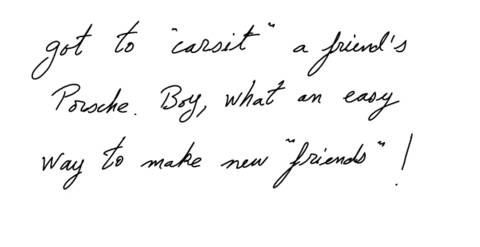 got to "carsit" a friend's
Porsche. Boy, what an easy
way to make new "friends"!